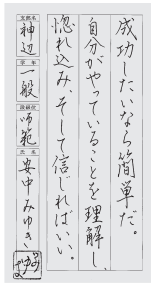 成功したいなら簡単だ。
自分がやっていることを理解し、
惚れ込み、そして信じればいい。
支部名
神辺
学年
一般
段級位
師範
氏名
安中みゆき